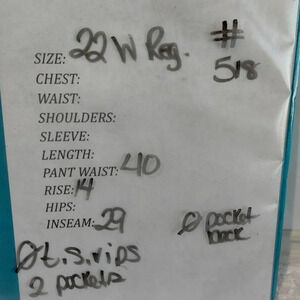 SIZE: 22 W Reg. #
CHEST: 518
WAIST:
SHOULDERS:
SLEEVE:
LENGTH:
PANT WAIST: 40
RISE: 14
HIPS:
INSEAM: 29
Ø pocket
back
Ø t.s. rips
2 pockets